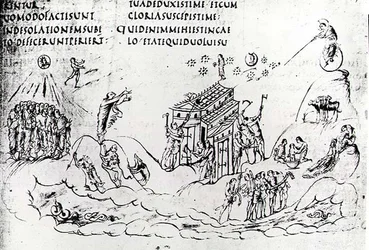 RENTUR
UOMODOFACTISUNT
INDESOLATIONEMSUBI
TO DEFECERUNTPERIERT
TUADEDUXISTIMEETCUM
GLORIASUSCEPISTIME
QUIDENIMMIHIESTINCAE
LO ETATEQUIDUOLUISU